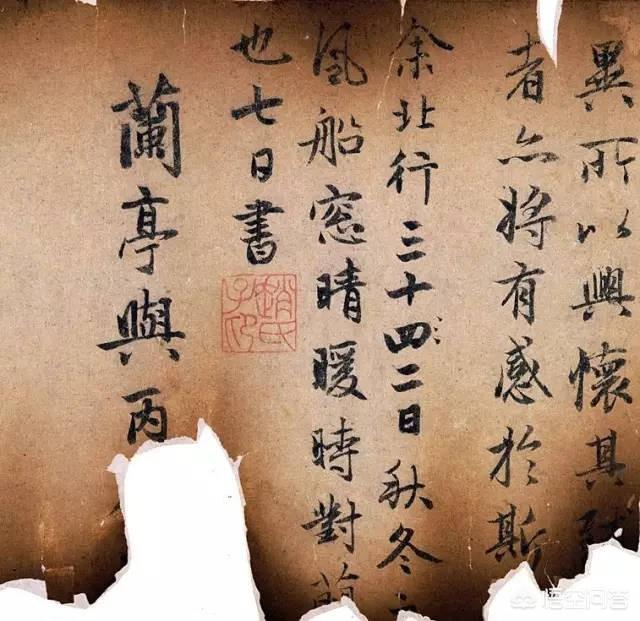 異所以興懷其
者亦將有感於斯
余北行三十四二日秋冬
風船窓晴暖時對
也七日書
趙氏子昂
蘭亭與丙
悟空问答